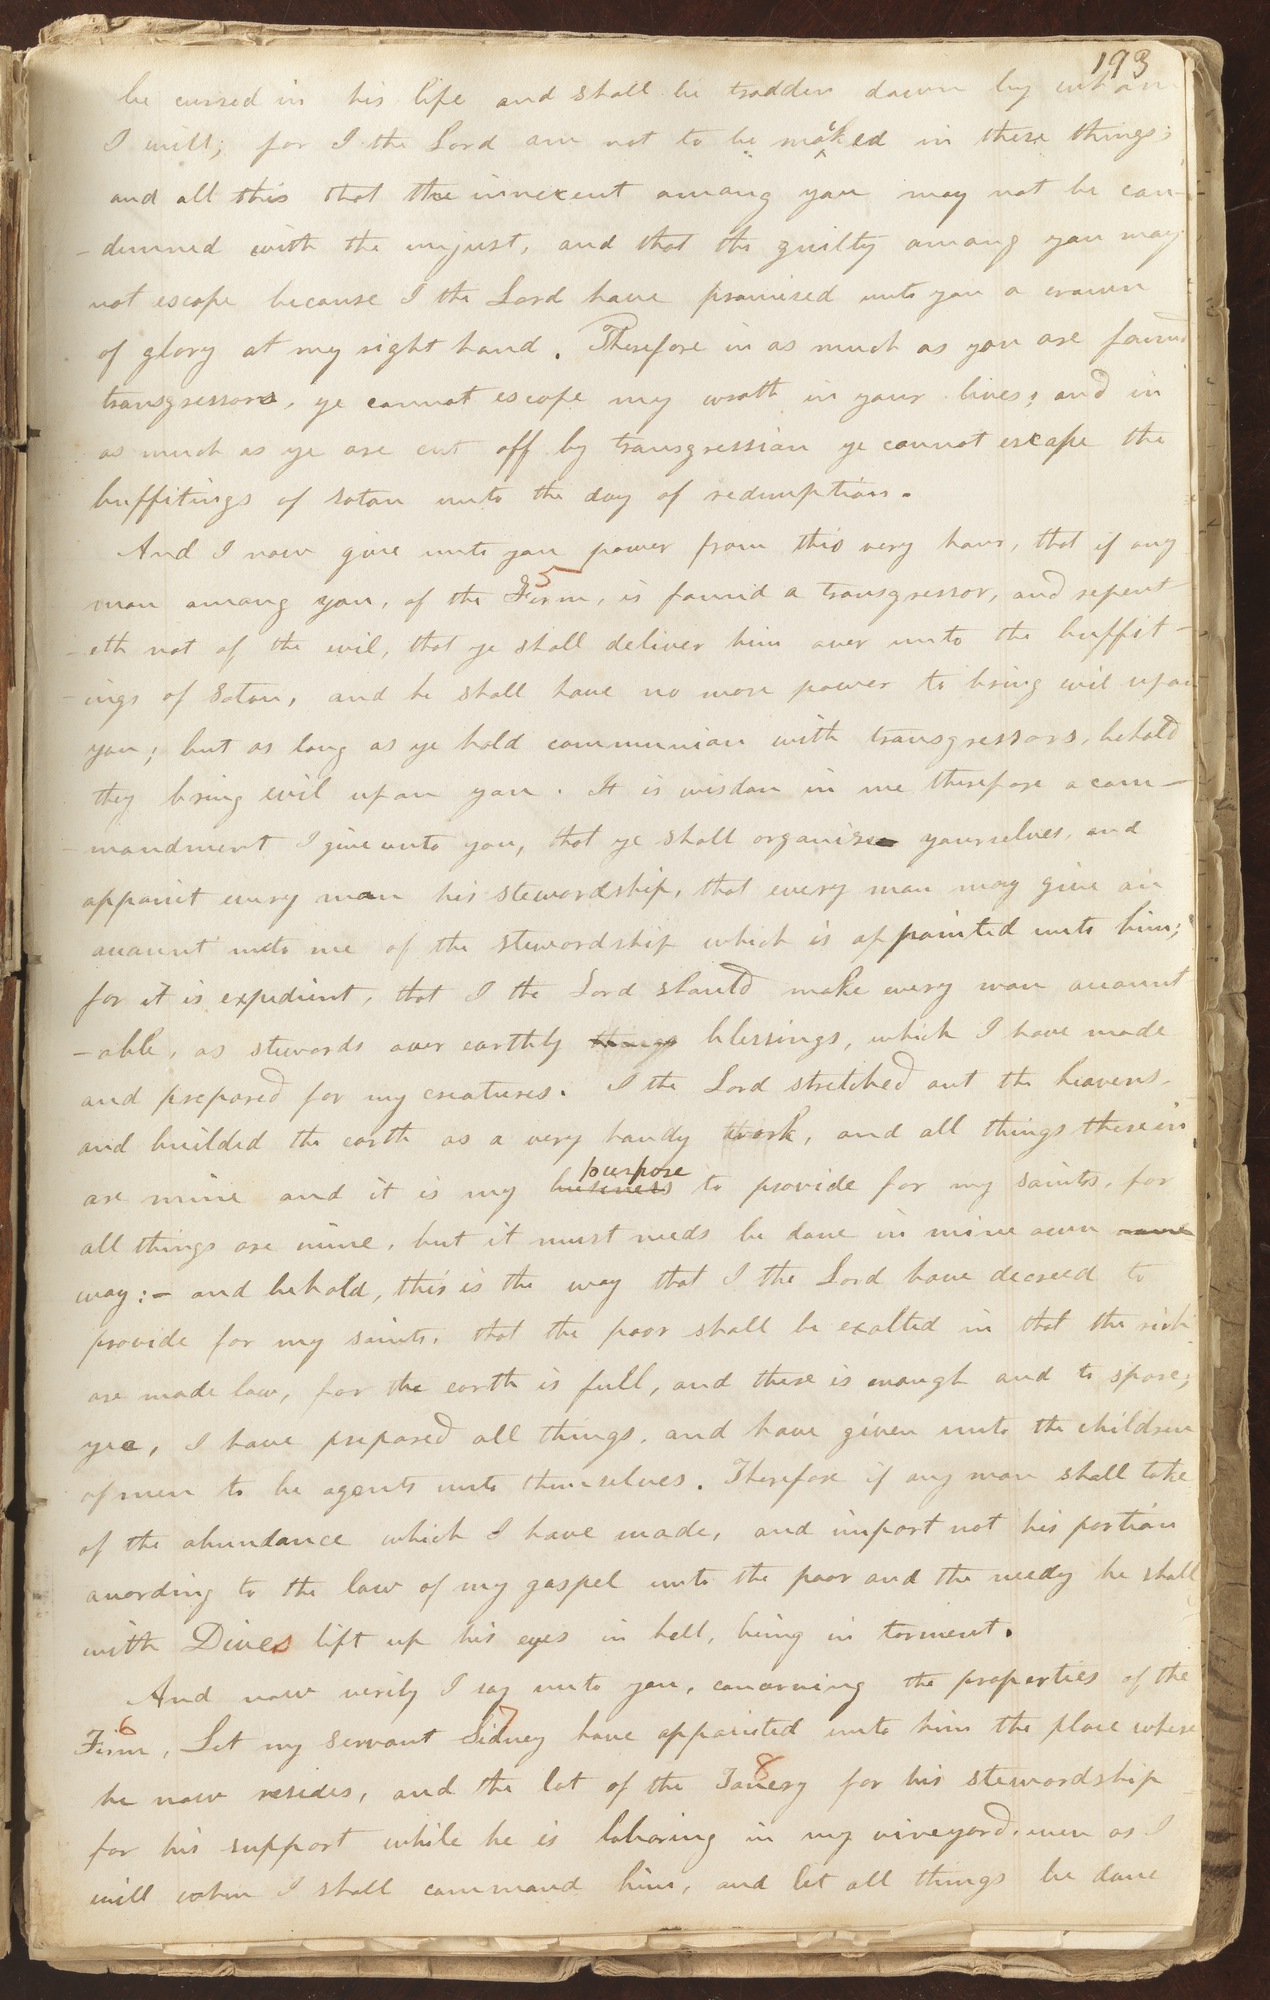 193
be cursed in his life and shall be trodden down by whom
I will; for I the Lord am not to be mocked in these things;
and all this that the innocent among you may not be con-
-demned with the unjust, and that the guilty among you may
not escape because I the Lord have promised unto you a crown
of glory at my right hand. Therefore in as much as you are found
transgressors, ye cannot escape my wrath in your lives; and in
as much as ye are cut off by transgression ye cannot escape the
buffitings of Satan unto the day of redemption.
And I now give unto you power from this very hour, that if any
5
man among you, of the Firm, is found a transgressor, and repent-
-eth not of the evil, that ye shall deliver him over unto the buffit-
-ings of Satan, and he shall have no more power to bring evil upon
you; but as long as ye hold communion with transgressors, behold
they bring evil upon you. It is wisdom in me therefore a com-
-mandment I give unto you, that ye shall organize yourselves, and
appoint every man his stewardship, that every man may give an
account unto me of the stewardship which is appointed unto him;
for it is expedient, that I the Lord should make every man account
-able, as stewards over earthly things blessings, which I have made
and prepared for my creatures. I the Lord stretched out the heavens,
and builded the earth as a very handy work, and all things therein
purpose
are mine and it is my business to provide for my saints, for
all things are mine, but it must needs be done in mine own
way:- and behold, this is the way that I the Lord have decreed to
provide for my saints, that the poor shall be exalted in that the rich
are made low, for the earth is full, and there is enough and to spare;
yea, I have prepared all things, and have given unto the children
of men to be agents unto themselves. Therefore if any man shall take
of the abundance which I have made, and impart not his portion
according to the law of my gospel unto the poor and the needy he shall
with Dives lift up his eyes in hell, being in torment.
And now verily I say unto you, concerning the properties of the
6 7
Firm, Let my servant Sidney have appointed unto him the place where
8
he now resides, and the lot of the Tanery for his stewardship
for his support while he is laboring in my vineyard, even as I
will when I shall command him, and let all things be done